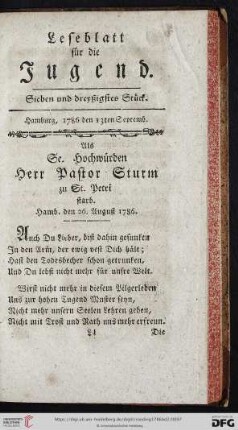 Leseblatt
für die
Jugend.
Sieben und dreyßigstes Stück.
Hamburg, 1786 den 13ten Septemb.
Als
Se. Hochwürden
Herr Pastor Sturm
zu St. Petri
starb.
Hamb. den 26. August 1786.
Auch Du Lieber, bist dahin gesunken
In den Arm, der ewig vest Dich hält;
Hast den Todesbecher schon getrunken,
Und Du lebst nicht mehr für unsre Welt.
Wirst nicht mehr in diesem Pilgerleben
Uns zur hohen Tugend Muster seyn,
Nicht mehr unsern Seelen Lehren geben,
Nicht mit Trost und Rath uns mehr erfreun.
Ll Die